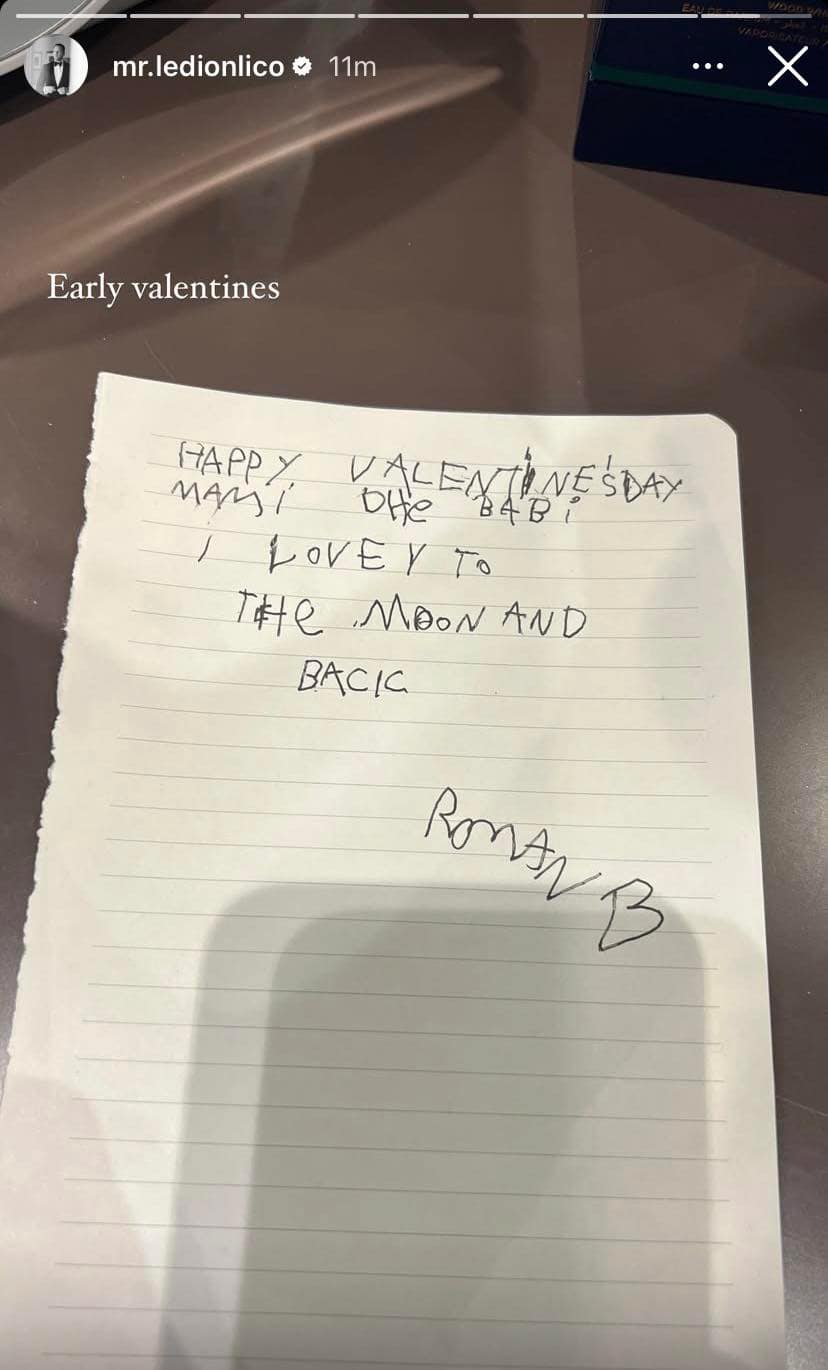 EAU DE
WOOD
VAPORISATEUR
mr.ledionlico 11m
Early valentines
HAPPY VALENTINE'SDAY
MAMI DHe BABi
I LOVE Y TO
THe MOON AND
BACK
ROMAN B